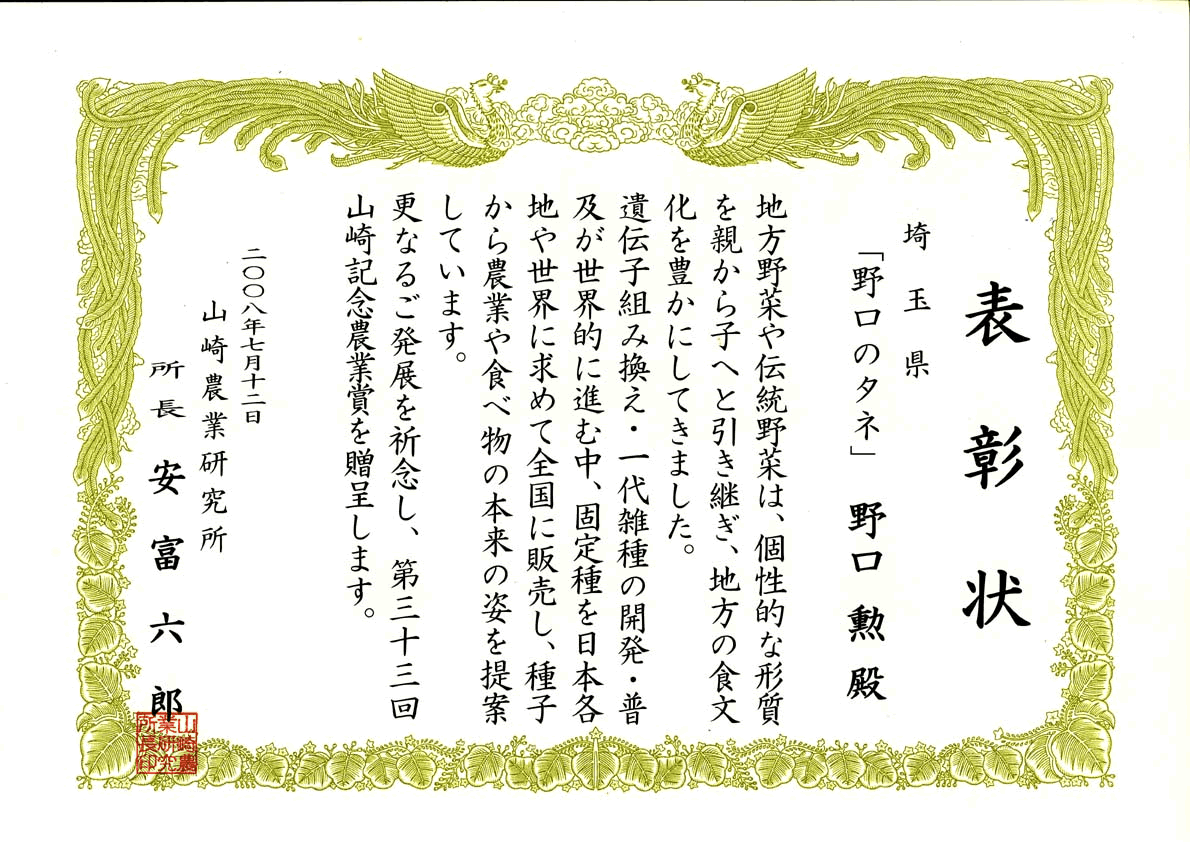 表彰状
埼玉県
「野口のタネ」 野口勲殿
地方野菜や伝統野菜は、個性的な形質
を親から子へと引き継ぎ、地方の食文
化を豊かにしてきました。
遺伝子組み換え・一代雑種の開発・普
及が世界的に進む中、固定種を日本各
地や世界に求めて全国に販売し、種子
から農業や食べ物の本来の姿を提案
しています。
更なるご発展を祈念し、第三十三回
山崎記念農業賞を贈呈します。
二〇〇八年七月十二日
山崎農業研究所
所長 安富六郎
山崎農
業研究
所長印